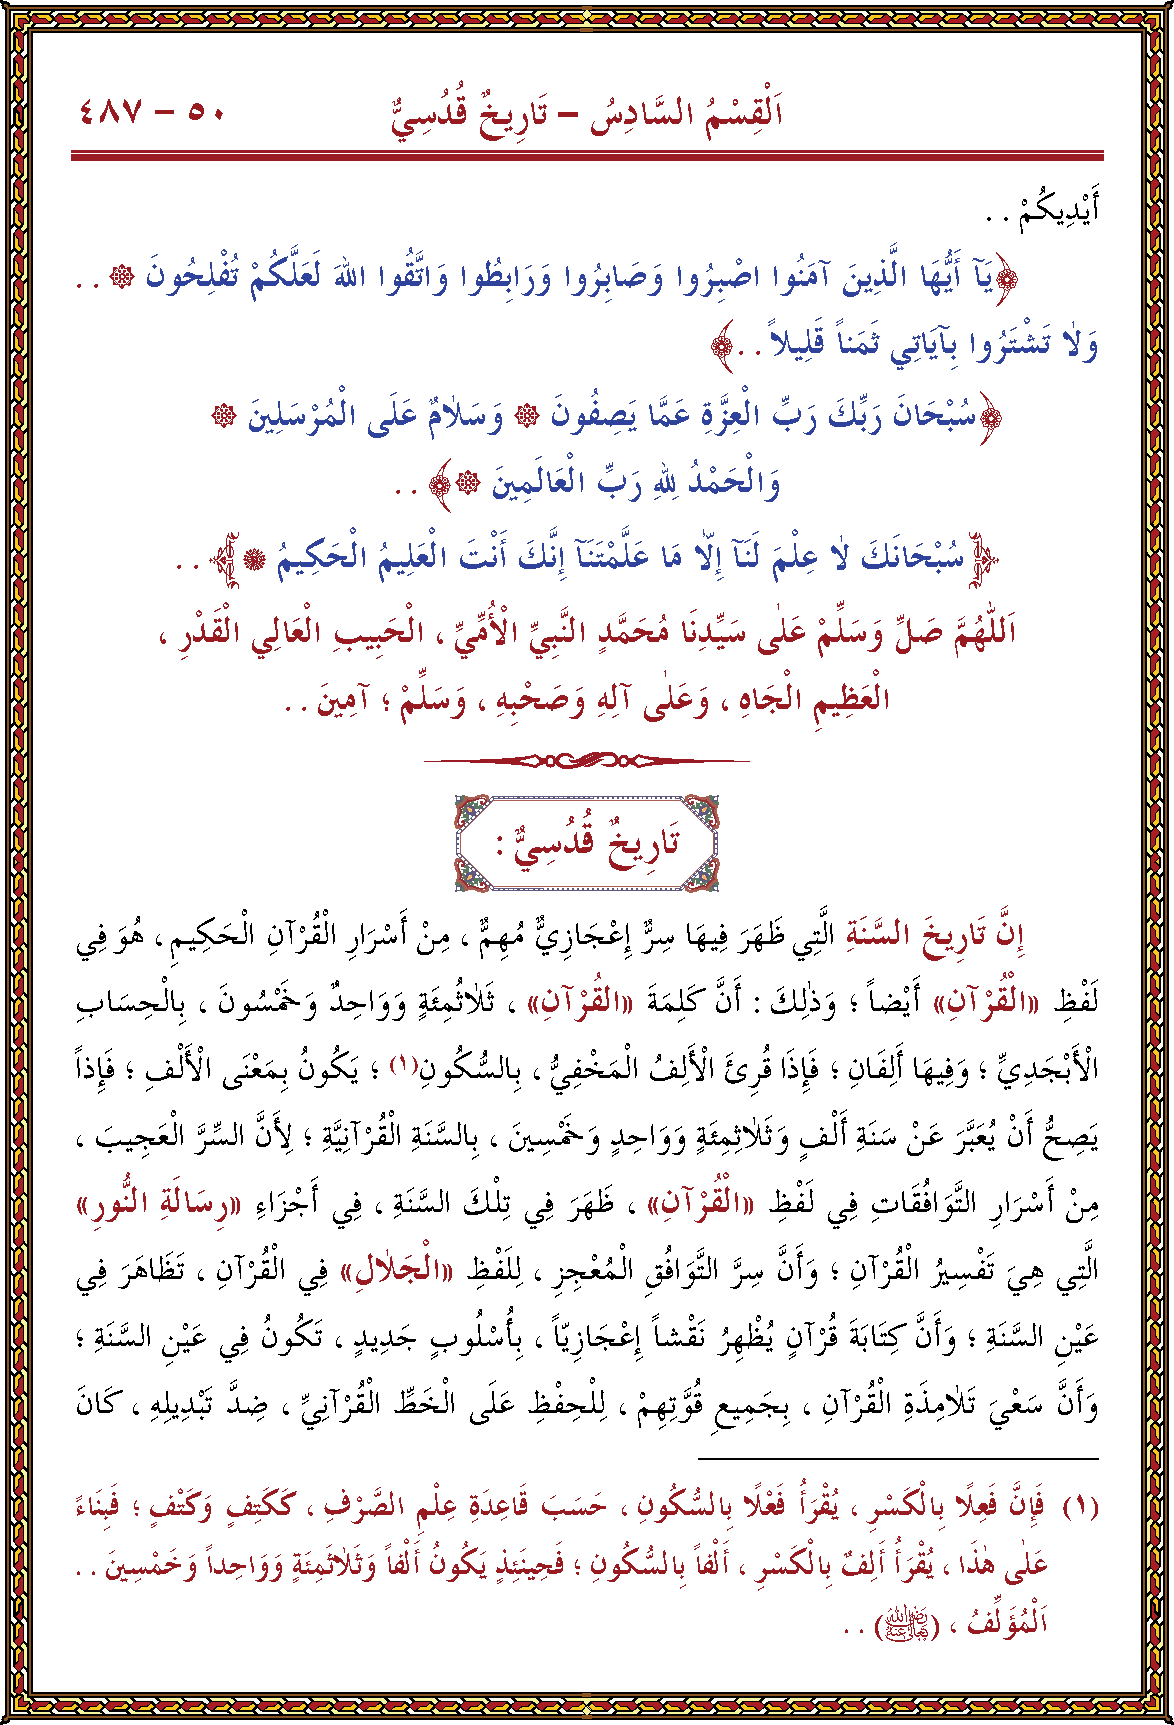 اَلْقِسْمُ السَّادِسُ – تَارِيخٌ قُدُسِيٌّ ٥٠ – ٤٨٧
أَيْدِيكُمْ . .
﴿يَآ أَيُّهَا الَّذِينَ آمَنُوا اصْبِرُوا وَصَابِرُوا وَرَابِطُوا وَاتَّقُوا اللهَ لَعَلَّكُمْ تُفْلِحُونَ ۞ . .
وَلاٰ تَشْتَرُوا بِآيَاتِي ثَمَناً قَلِيلاً . .﴾
﴿سُبْحَانَ رَبِّكَ رَبِّ الْعِزَّةِ عَمَّا يَصِفُونَ ۞ وَسَلاٰمٌ عَلَى الْمُرْسَلِينَ ۞
وَالْحَمْدُ لِلهِ رَبِّ الْعَالَمِينَ ۞﴾ . .
﴿سُبْحَانَكَ لاٰ عِلْمَ لَنَآ إِلاّٰ مَا عَلَّمْتَنَآ إِنَّكَ أَنْتَ الْعَلِيمُ الْحَكِيمُ ۞﴾ . .
اَللّٰهُمَّ صَلِّ وَسَلِّمْ عَلٰى سَيِّدِنَا مُحَمَّدٍ النَّبِيِّ الْأُمِّيِّ ، الْحَبِيبِ الْعَالِي الْقَدْرِ ،
الْعَظِيمِ الْجَاهِ ، وَعَلٰى آلِهِ وَصَحْبِهِ ، وَسَلِّمْ ؛ آمِينَ . .
تَارِيخٌ قُدُسِيٌّ :
إِنَّ تَارِيخَ السَّنَةِ الَّتِي ظَهَرَ فِيهَا سِرٌّ إِعْجَازِيٌّ مُهِمٌّ ، مِنْ أَسْرَارِ الْقُرْآنِ الْحَكِيمِ ، هُوَ فِي
لَفْظِ «الْقُرْآنِ» أَيْضاً ؛ وَذٰلِكَ : أَنَّ كَلِمَةَ «القُرْآنِ» ، ثَلاٰثُمِئَةٍ وَوَاحِدٌ وَخَمْسُونَ ، بِالْحِسَابِ
الْأَبْجَدِيِّ ؛ وَفِيهَا أَلِفَانِ ؛ فَإِذَا قُرِئَ الْأَلِفُ الْمَخْفِيُّ ، بِالسُّكُونِ(١) ؛ يَكُونُ بِمَعْنَى الْأَلْفِ ؛ فَإِذاً
يَصِحُّ أَنْ يُعَبَّرَ عَنْ سَنَةِ أَلْفٍ وَثَلاٰثِمِئَةٍ وَوَاحِدٍ وَخَمْسِينَ ، بِالسَّنَةِ الْقُرْآنِيَّةِ ؛ لِأَنَّ السِّرَّ الْعَجِيبَ ،
مِنْ أَسْرَارِ التَّوَافُقَاتِ فِي لَفْظِ «الْقُرْآنِ» ، ظَهَرَ فِي تِلْكَ السَّنَةِ ، فِي أَجْزَاءِ «رِسَالَةِ النُّورِ»
الَّتِي هِيَ تَفْسِيرُ الْقُرْآنِ ؛ وَأَنَّ سِرَّ التَّوَافُقِ الْمُعْجِزِ ، لِلَفْظِ «الْجَلاٰلِ» فِي الْقُرْآنِ ، تَظَاهَرَ فِي
عَيْنِ السَّنَةِ ؛ وَأَنَّ كِتَابَةَ قُرْآنٍ يُظْهِرُ نَقْشاً إِعْجَازِيّاً ، بِأُسْلُوبٍ جَدِيدٍ ، تَكُونُ فِي عَيْنِ السَّنَةِ ؛
وَأَنَّ سَعْيَ تَلاٰمِذَةِ الْقُرْآنِ ، بِجَمِيعِ قُوَّتِهِمْ ، لِلْحِفْظِ عَلَى الْخَطِّ الْقُرْآنِيِّ ، ضِدَّ تَبْدِيلِهِ ، كَانَ
(١) فَإِنَّ فَعِلًا بِالْكَسْرِ ، يُقْرَأُ فَعْلًا بِالسُّكُونِ ، حَسَبَ قَاعِدَةِ عِلْمِ الصَّرْفِ ، كَكَتِفٍ وَكَتْفٍ ؛ فَبِنَاءً
عَلٰى هٰذَا ، يُقْرَأُ أَلِفٌ بِالْكَسْرِ ، أَلْفاً بِالسُّكُونِ ؛ فَحِينَئِذٍ يَكُونُ أَلْفاً وَثَلاٰثَمِئَةٍ وَوَاحِداً وَخَمْسِينَ . .
اَلْمُؤَلِّفُ ، (رَضِيَ اللهُ تَعَالَى عَنْهُ) . .